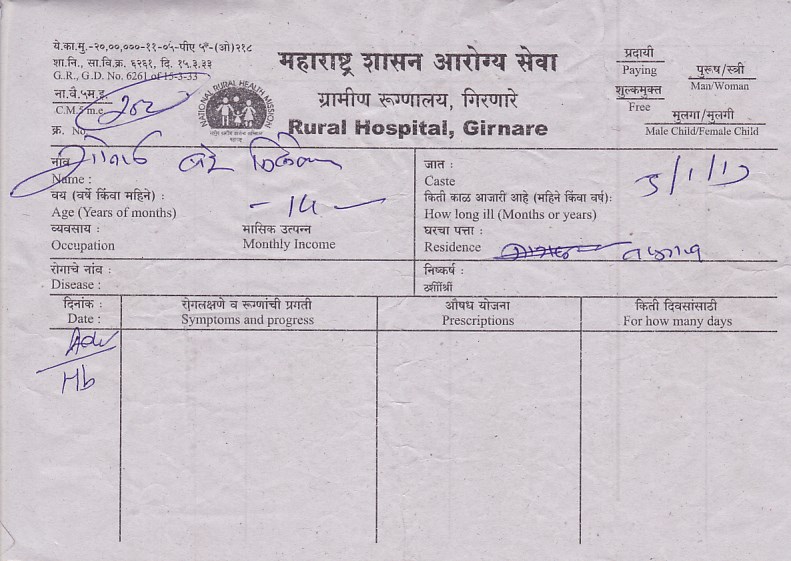 ये.का.मु.-२०,००,०००-११-०५-पीए ५*-(ओ)२१८
शा.नि., सा.वि.क्र. ६२६१, दि. १५.३.३३
G.R., G.D. No. 6261 of 15-3-33
ना.वै.५म.इ.
C.M.5 m.e.
202
क्र. No.
NATIONAL RURAL HEALTH MISSION
महाराष्ट्र शासन आरोग्य सेवा
ग्रामीण रूग्णालय, गिरणारे
Rural Hospital, Girnare
प्रदायी
Paying
शुल्कमुक्त
Free
पुरूष/स्त्री
Man/Woman
मुलगा/मुलगी
Male Child/Female Child
नाव
Name :
वय (वर्षे किंवा महिने) :
Age (Years of months)
- 14 -
व्यवसाय :
Occupation
मासिक उत्पन्न
Monthly Income
जात :
Caste
5/1/17
किती काळ आजारी आहे (महिने किंवा वर्ष):
How long ill (Months or years)
घरचा पत्ता :
Residence
रोगाचे नांव :
Disease :
निष्कर्ष :
दिनांक :
Date :
रोगलक्षणे व रूग्णांची प्रगती
Symptoms and progress
औषध योजना
Prescriptions
किती दिवसांसाठी
For how many days
Adv
Hb